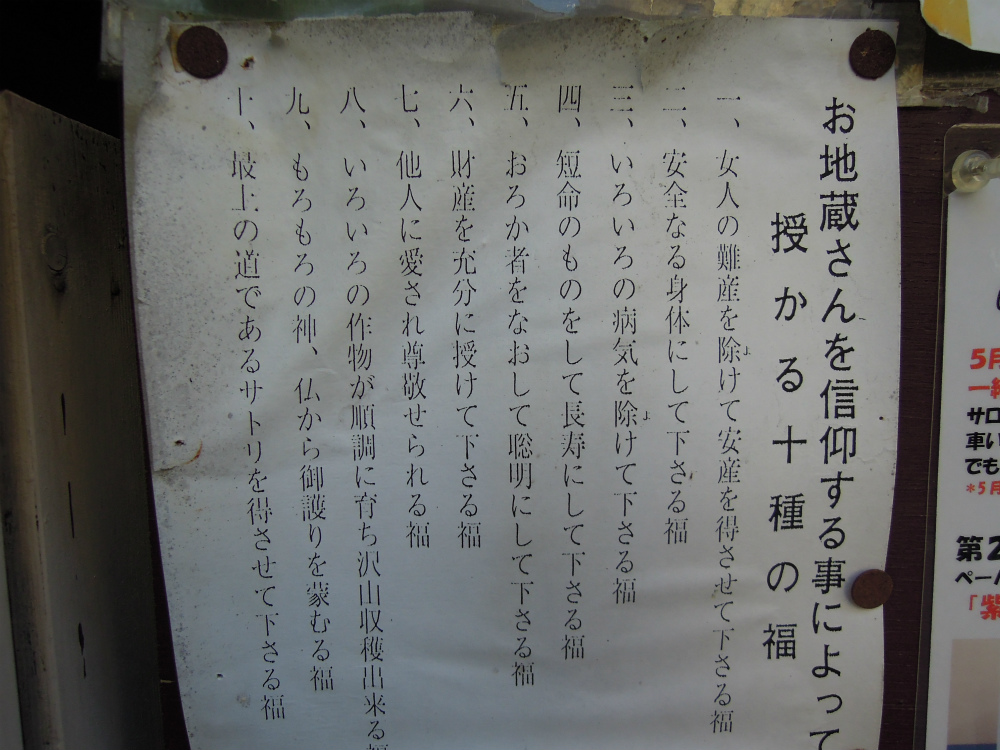 お地蔵さんを信仰する事によって
授かる十種の福
一、女人の難産を除けて安産を得させて下さる福
二、安全なる身体にして下さる福
三、いろいろの病気を除けて下さる福
四、短命のものをして長寿にして下さる福
五、おろか者をなおして聡明にして下さる福
六、財産を充分に授けて下さる福
七、他人に愛され尊敬せられる福
八、いろいろの作物が順調に育ち沢山収穫出来る福
九、もろもろの神、仏から御護りを蒙むる福
十、最上の道であるサトリを得させて下さる福
5月
サロ
車い
でも
*5月
第2
ペー
「紫